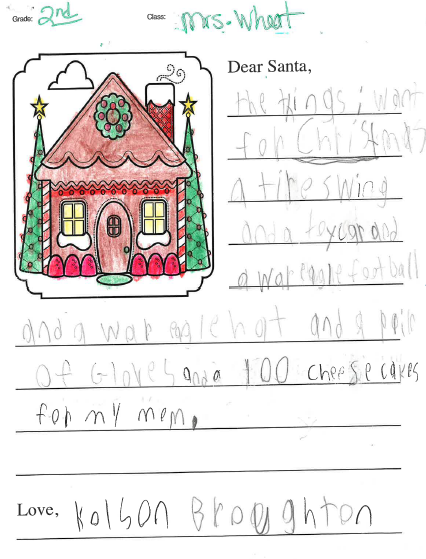 Grade: 2nd Class: Mrs. Wheat
Dear Santa,
the things i want
for Christmas
a tire swing
and a toy car and
a war eagle football
and a war eagle hat and a pair
of Gloves and a 100 cheese cakes
for my mem.
Love, Kolson Broughton